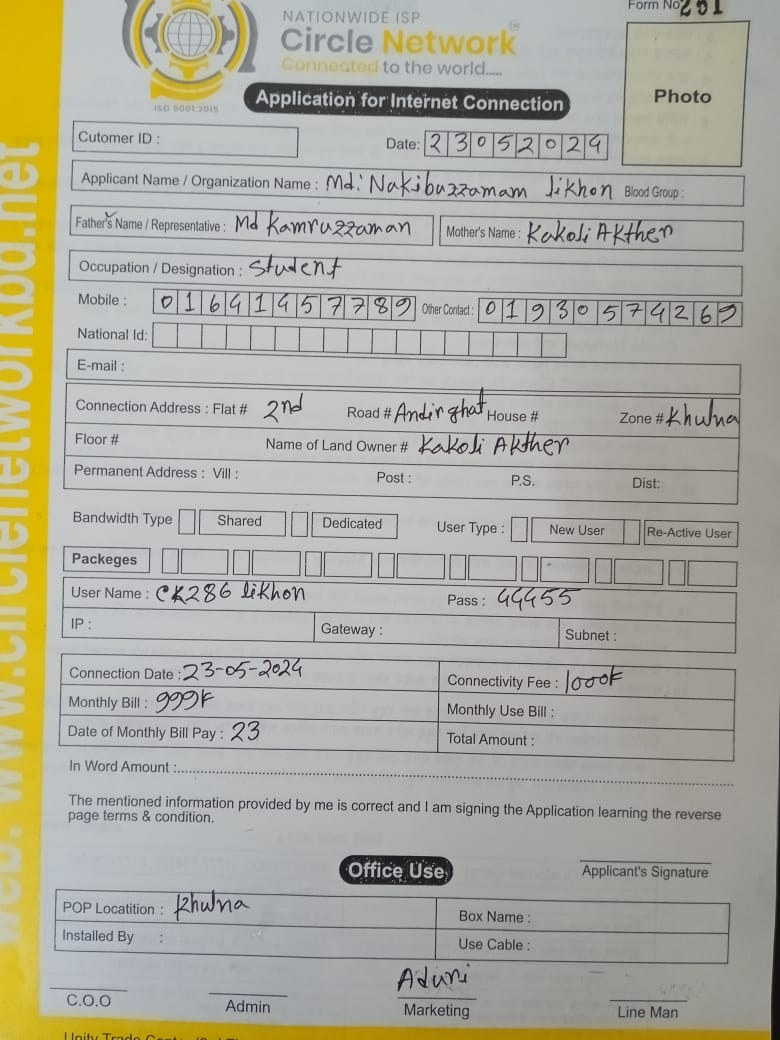 NATIONWIDE ISP
Form No 201
Circle Network
TM
Connected to the world.....
ISO 9001:2015
Application for Internet Connection
Photo
Cutomer ID :
Date: 23052024
Applicant Name / Organization Name : Md: Nakibuzzamam likhon Blood Group :
Father's Name / Representative : Md Kamruzzaman Mother's Name : Kakoli AKther
Occupation / Designation : Student
Mobile : 01641457789 Other Contact : 01930574269
National Id:
E-mail :
Connection Address : Flat # 2nd Road # Andirghat House # Zone # Khulna
Floor # Name of Land Owner # Kakoli AKther
Permanent Address : Vill : Post : P.S. Dist:
Bandwidth Type Shared Dedicated User Type : New User Re-Active User
Packeges
User Name : CK286 likhon Pass : 44455
IP : Gateway : Subnet :
Connection Date : 23-05-2024 Connectivity Fee : 1000K
Monthly Bill : 999K Monthly Use Bill :
Date of Monthly Bill Pay : 23 Total Amount :
In Word Amount :
The mentioned information provided by me is correct and I am signing the Application learning the reverse
page terms & condition.
Office Use
Applicant's Signature
POP Locatition : Khulna Box Name :
Installed By : Use Cable :
Aduri
C.O.O Admin Marketing Line Man
web: www.circlenetworkbd.net